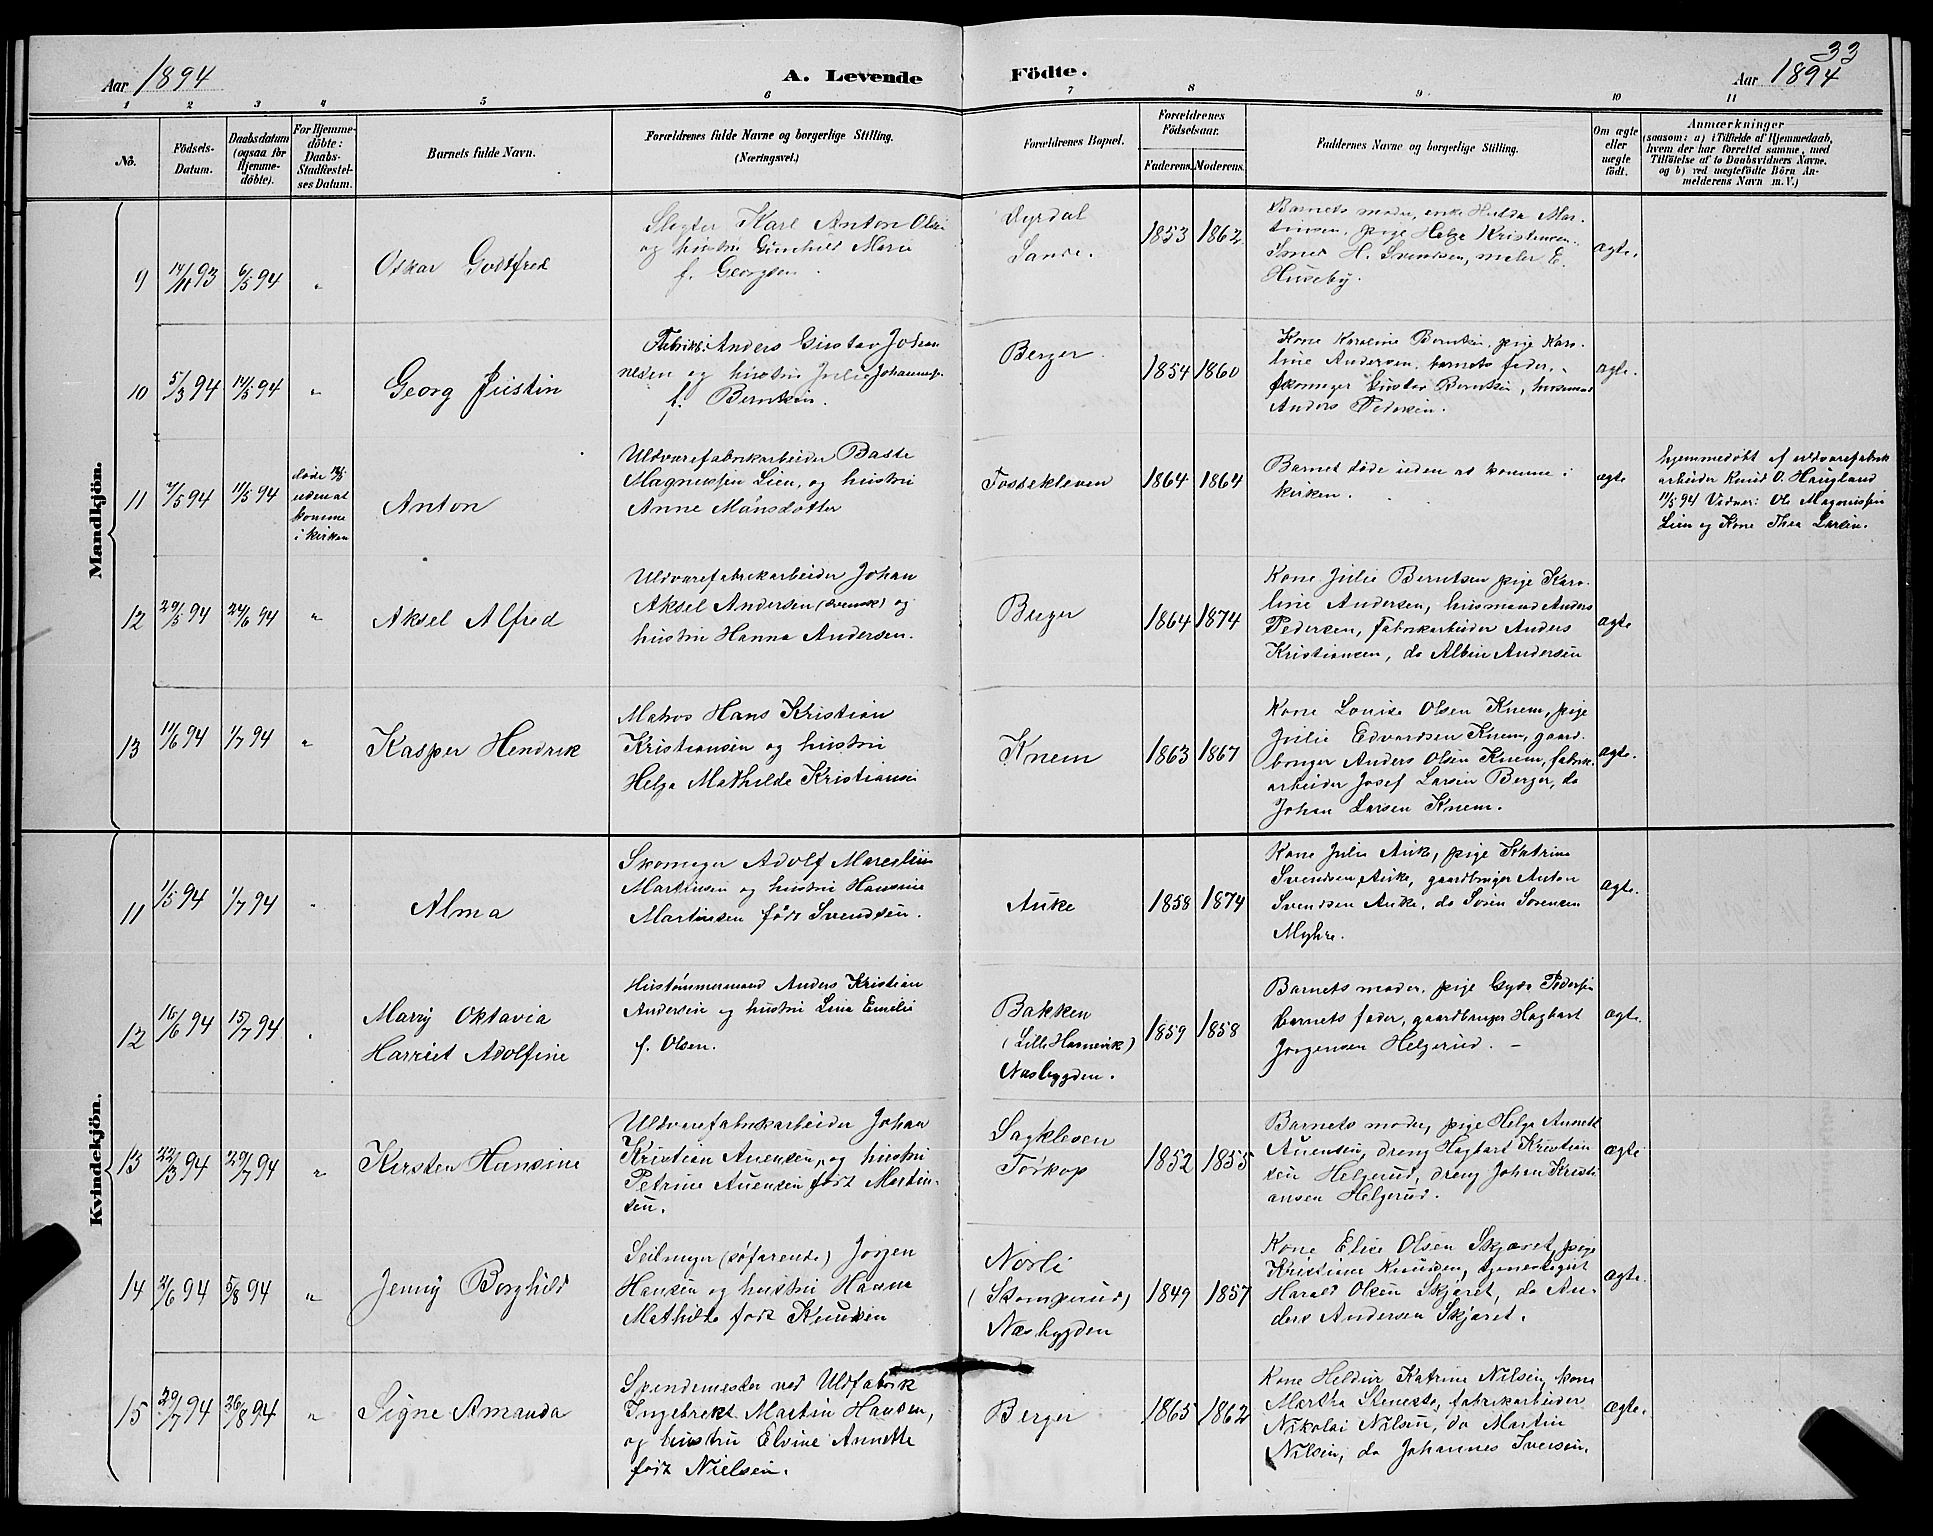 33
Aar 1894 A. Levende Födte. Aar 1894
1 2 3 4 5 6 7 8 9 10 11
No.
Födsels-Datum.
Daabsdatum (ogsaa for Hjemme-döbte).
For Hjemme-döbte: Daabs-Stadfæstel-ses Datum.
Barnets fulde Navn.
Forældrenes fulde Navne og borgerlige Stilling. (Næringsvei.)
Forældrenes Bopæl.
Forældrenes Födselsaar.
Faderens. Moderens.
Faddernes Navne og borgerlige Stilling.
Om ægte eller uægte födt.
Anmærkninger
(saasom: a) i Tilfælde af Hjemmedaab,
hvem der har forrettet samme, med
Tilföielse af to Daabsvidners Navne.
og b) ved uægtefödte Börn An-
melderens Navn m. V.)
Mandkjön.
9 14/11 93 6/5 94 "
Oskar Godtfred
Slagter Karl Anton Olsen
og hustru Gunhild Marie
f. Georgsen.
Dyrdal
Sande.
1853 1862
Barnets moder, enke Hulda Mar-
tinsen, pige Helga Kristensen,
H. Svendsen, maler E.
Huseby.
ægte.
10 5/3 94 14/5 94 "
Georg Justin
Fabrikb. Anders Gustav Johan
nesen og hustru Julie Johannesen
f. Berntsen.
Berger.
1854 1860
Kone Karoline Berntsen, pige Karo-
line Andersen, barnets fader,
skomager Gustav Berntsen, husmand
Anders Pedersen.
ægte.
11 7/5 94 11/5 94
døde 12/5
uden at
komme
i kirken
Anton
Uldvarefabrikarbeider Baste
Magnussen Lien, og hustru
Anne Månsdotter
Fossekleven
1864 1864
Barnet døde uden at komme i
kirken.
ægte
hjemmedøbt af uldvarefabrik
arbeider Knud O. Haugland
11/5 94 Vidner: Ole Magnussen
Lien og Kone Thea Larsen.
12 29/5 94 24/6 94 "
Aksel Alfred
Uldvarefabrikarbeider Johan
Aksel Andersen (svensk) og
hustru Hanna Andersen.
Berger
1864 1874
Kone Julie Berntsen pige Karo-
line Andersen, husmand Anders
Pedersen, Fabrikarbeider Anders
Kristiansen, do Albin Andersen
ægte
13 14/6 94 1/7 94 "
Kasper Hendrik
Matros Hans Kristian
Kristiansen og hustru
Helga Mathilde Kristiansen
Knem
1863 1867
Kone Louise Olsen Knem, pige
Julie Edvardsen Knem, gaard-
bruger Anders Olsen Knem, fabrik-
arbeider Josef Larsen Berger, do
Johan Larsen Knem.
ægte.
Kvindekjön.
11 1/5 94 1/7 94
Alma
Skomager Adolf Marcelius
Martinsen og hustru Hansine
Martinsen født Svendsen.
Auke
1858 1874
Kone Julie Auke, pige Katrine
Svendsen Auke, gaardbruger Anton
Svendsen Auke, do Søren Sørensen
Myhre.
ægte.
12 16/6 94 15/7 94
Marry Oktavia
Harriet Adolfine
Hustømmermand Anders Kristian
Andersen og hustru Lina Emilie
f. Olsen.
Bakken
(Lille Hannevik)
Nesbygden.
1859 1858
Barnets moder, pige Gyda Pedersen
barnets fader, gaardbruger Hagbart
Jørgensen Helgerud. –
ægte.
13 22/3 94 29/7 94 "
Kirsten Hansine
Uldvarefabrikarbeider Johan
Kristian Auensen, og hustru
Petrine Auensen født Martin-
sen.
Sagkleven
Tørkop
1852 1855
Barnets moder, pige Helga Annett
Auensen, dreng Hagbart Kristian
sen Helgerud, dreng Johan Kristi
ansen Helgerud.
ægte
14 21/6 94 5/8 94 "
Jenny Borghild
Seilmager (søfarende) Jørgen
Hansen og hustru Hanna
Mathilde født Knudsen
Nordli
(Skomperud)
Nesbygden
1849 1857
Kone Elise Olsen Skjæret, pige
Kristine Knudsen,
Harald Olsen Skjæret, do An-
ders Andersen Skjæret.
ægte.
15 29/7 94 26/8 94 "
Signe Amanda
Spindemester ved Uldfabrik
Ingebrekt Martin Hansen,
og hustru Elvine Annette
født Nielsen.
Berger
1865 1862
Kone Heldine Katrine Nilsen, kone
Martha, fabrikarbeider
Nikolai Nilsen, do Martin
Nilsen, do Johannes Iversen.
ægte.